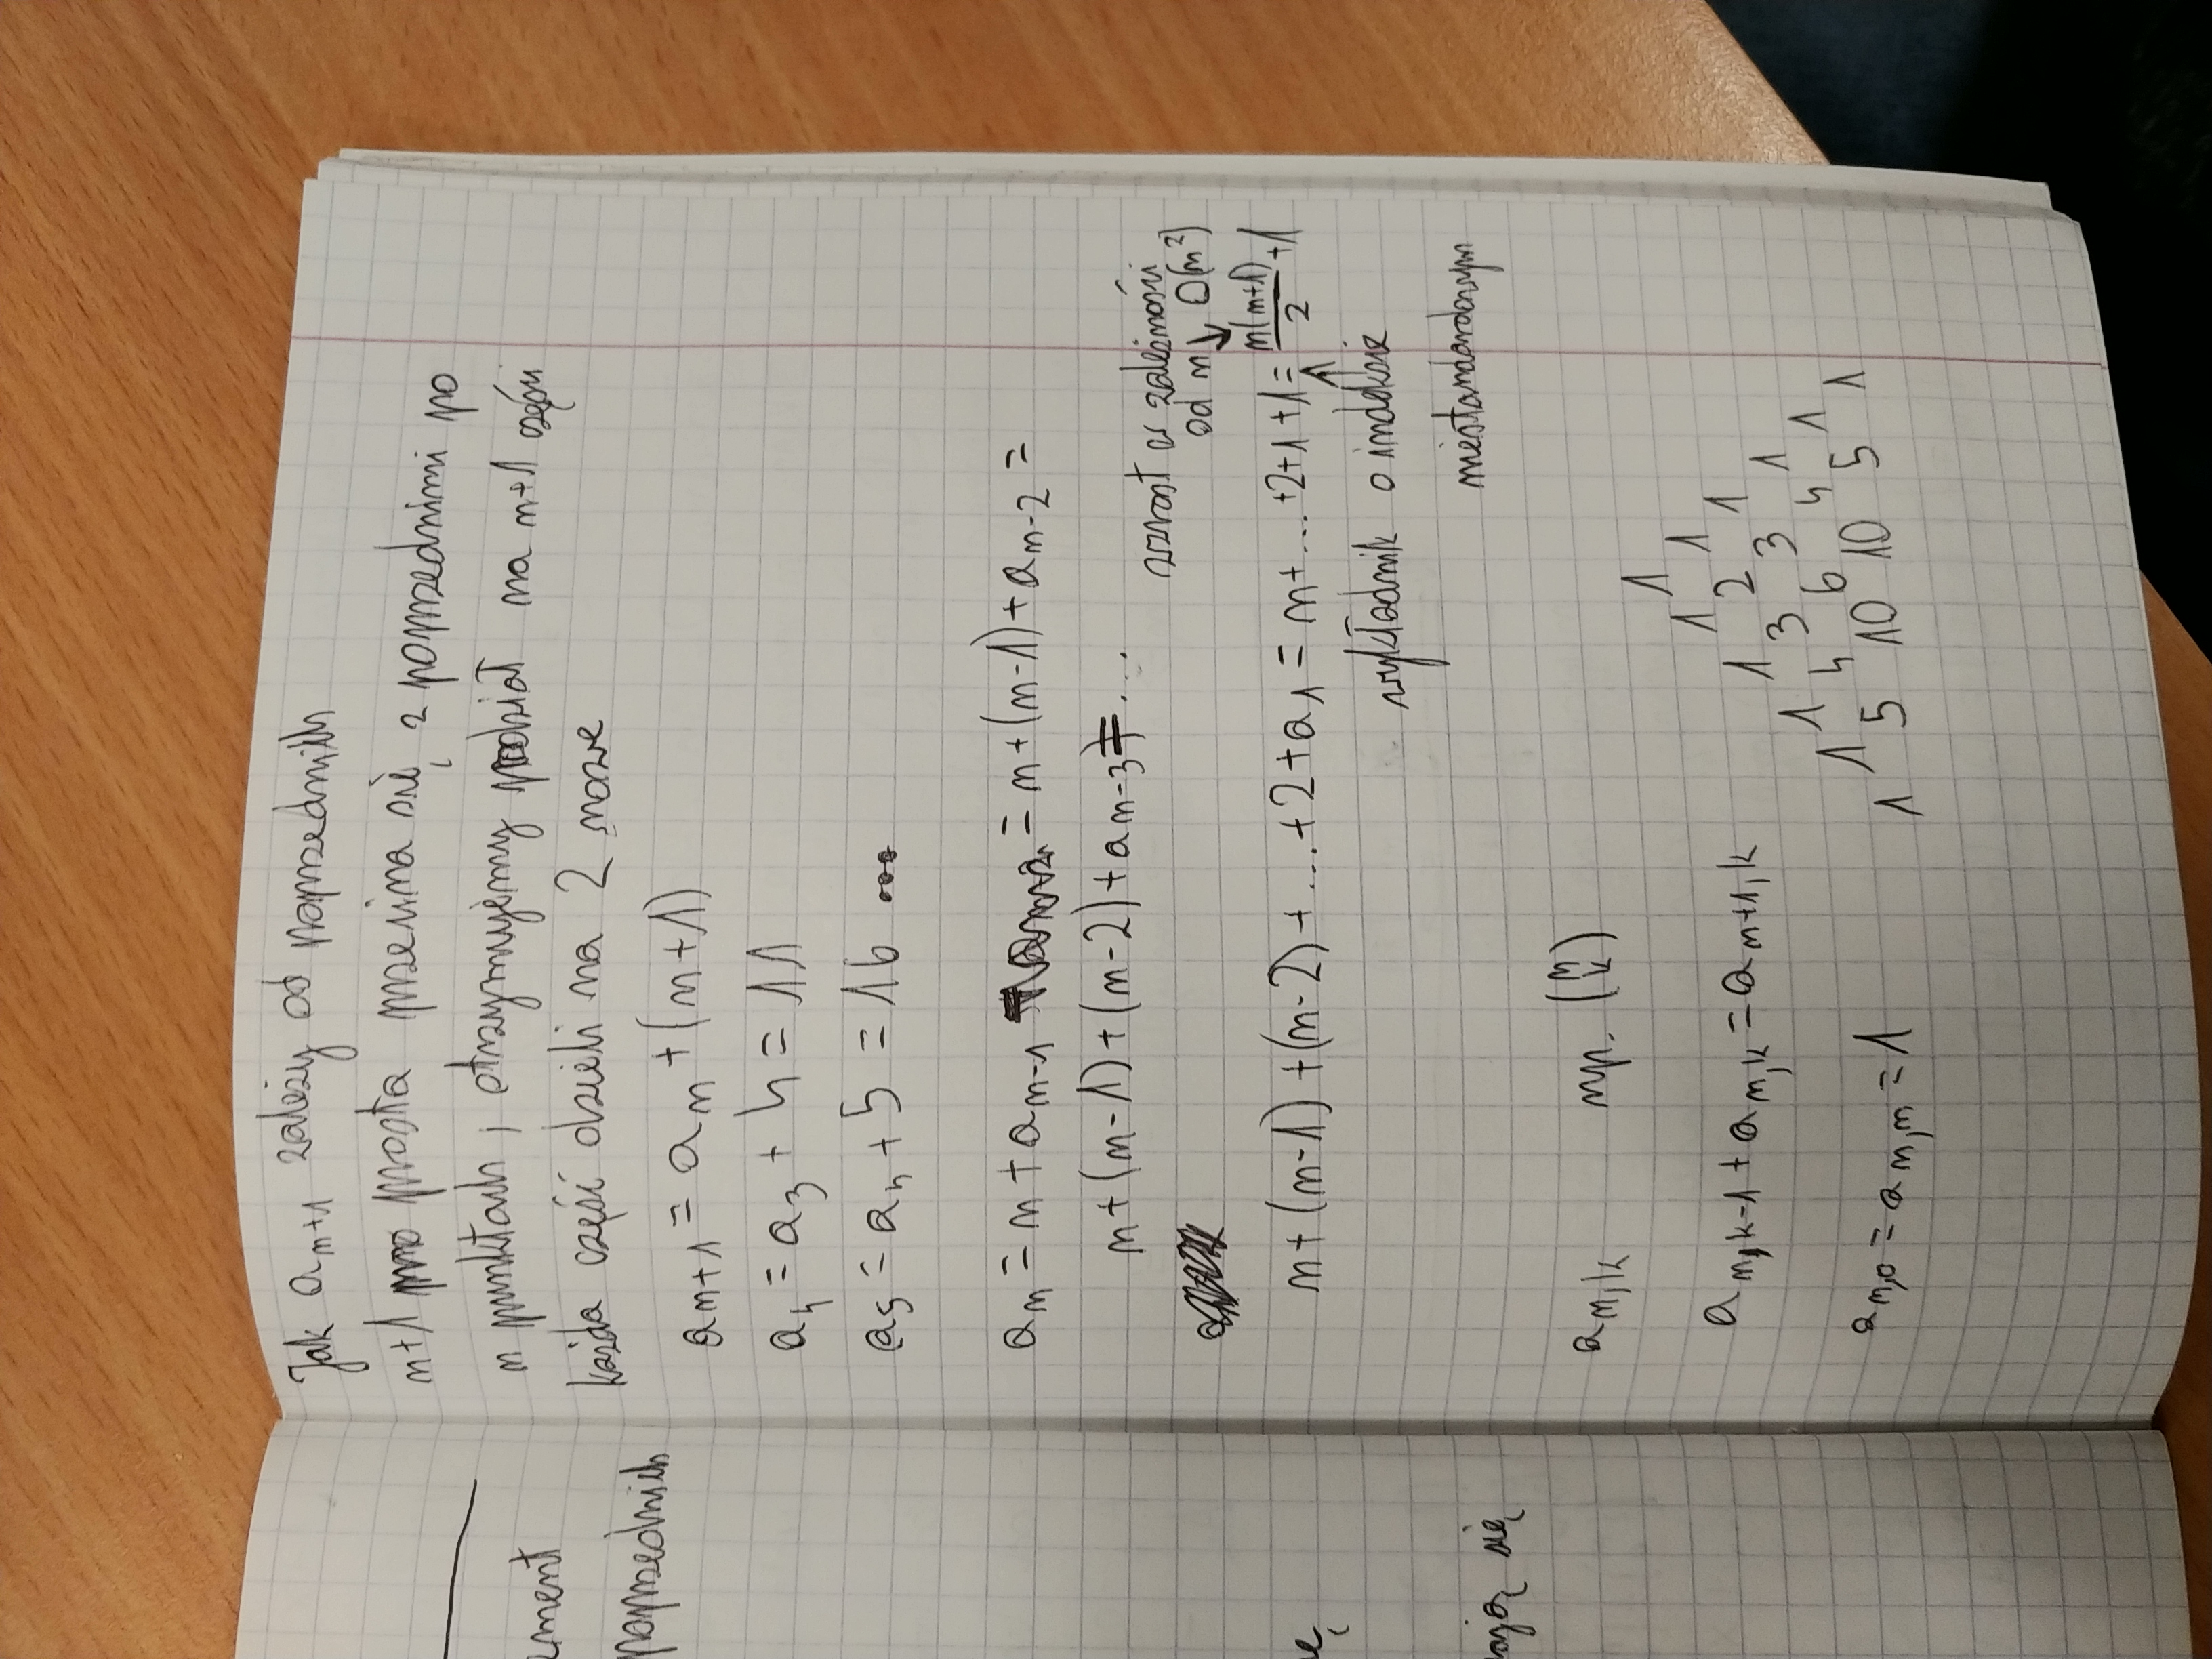 Jak a_{n+1} zależy od poprzednich
n+1 prosta przecina się z poprzednimi po
n punktach, otrzymujemy podział na n+1 części
każda część dzieli na 2 nowe
a_{n+1} = a_n + (n+1)
a_4 = a_3 + 4 = 11
a_5 = a_4 + 5 = 16 ...
a_n = n + a_{n-1} = n + (n-1) + a_{n-2} =
n + (n-1) + (n-2) + a_{n-3} = ...
wzrost w zależności
od n ↓ O(n²)
n + (n-1) + (n-2) + ... + 2 + a_1 = n + ... + 2 + 1 + 1 = n(n+1)/2 + 1
wykładnik o indeksie
niestandardowym
a_{n,k} np. (n k)
a_{n,k-1} + a_{n,k} = a_{n+1,k}
a_{n,0} = a_{n,n} = 1
1
1 1
1 2 1
1 3 3 1
1 4 6 4 1
1 5 10 10 5 1
ement
poprzednich
ę
ają się